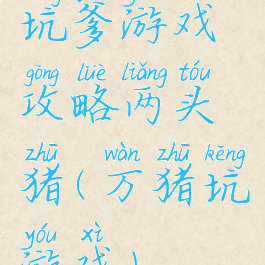 坑爹游戏
gōng lüè liǎng tóu
攻略两头
zhū wàn zhū kēng
猪(万猪坑
yóu xì
游戏)